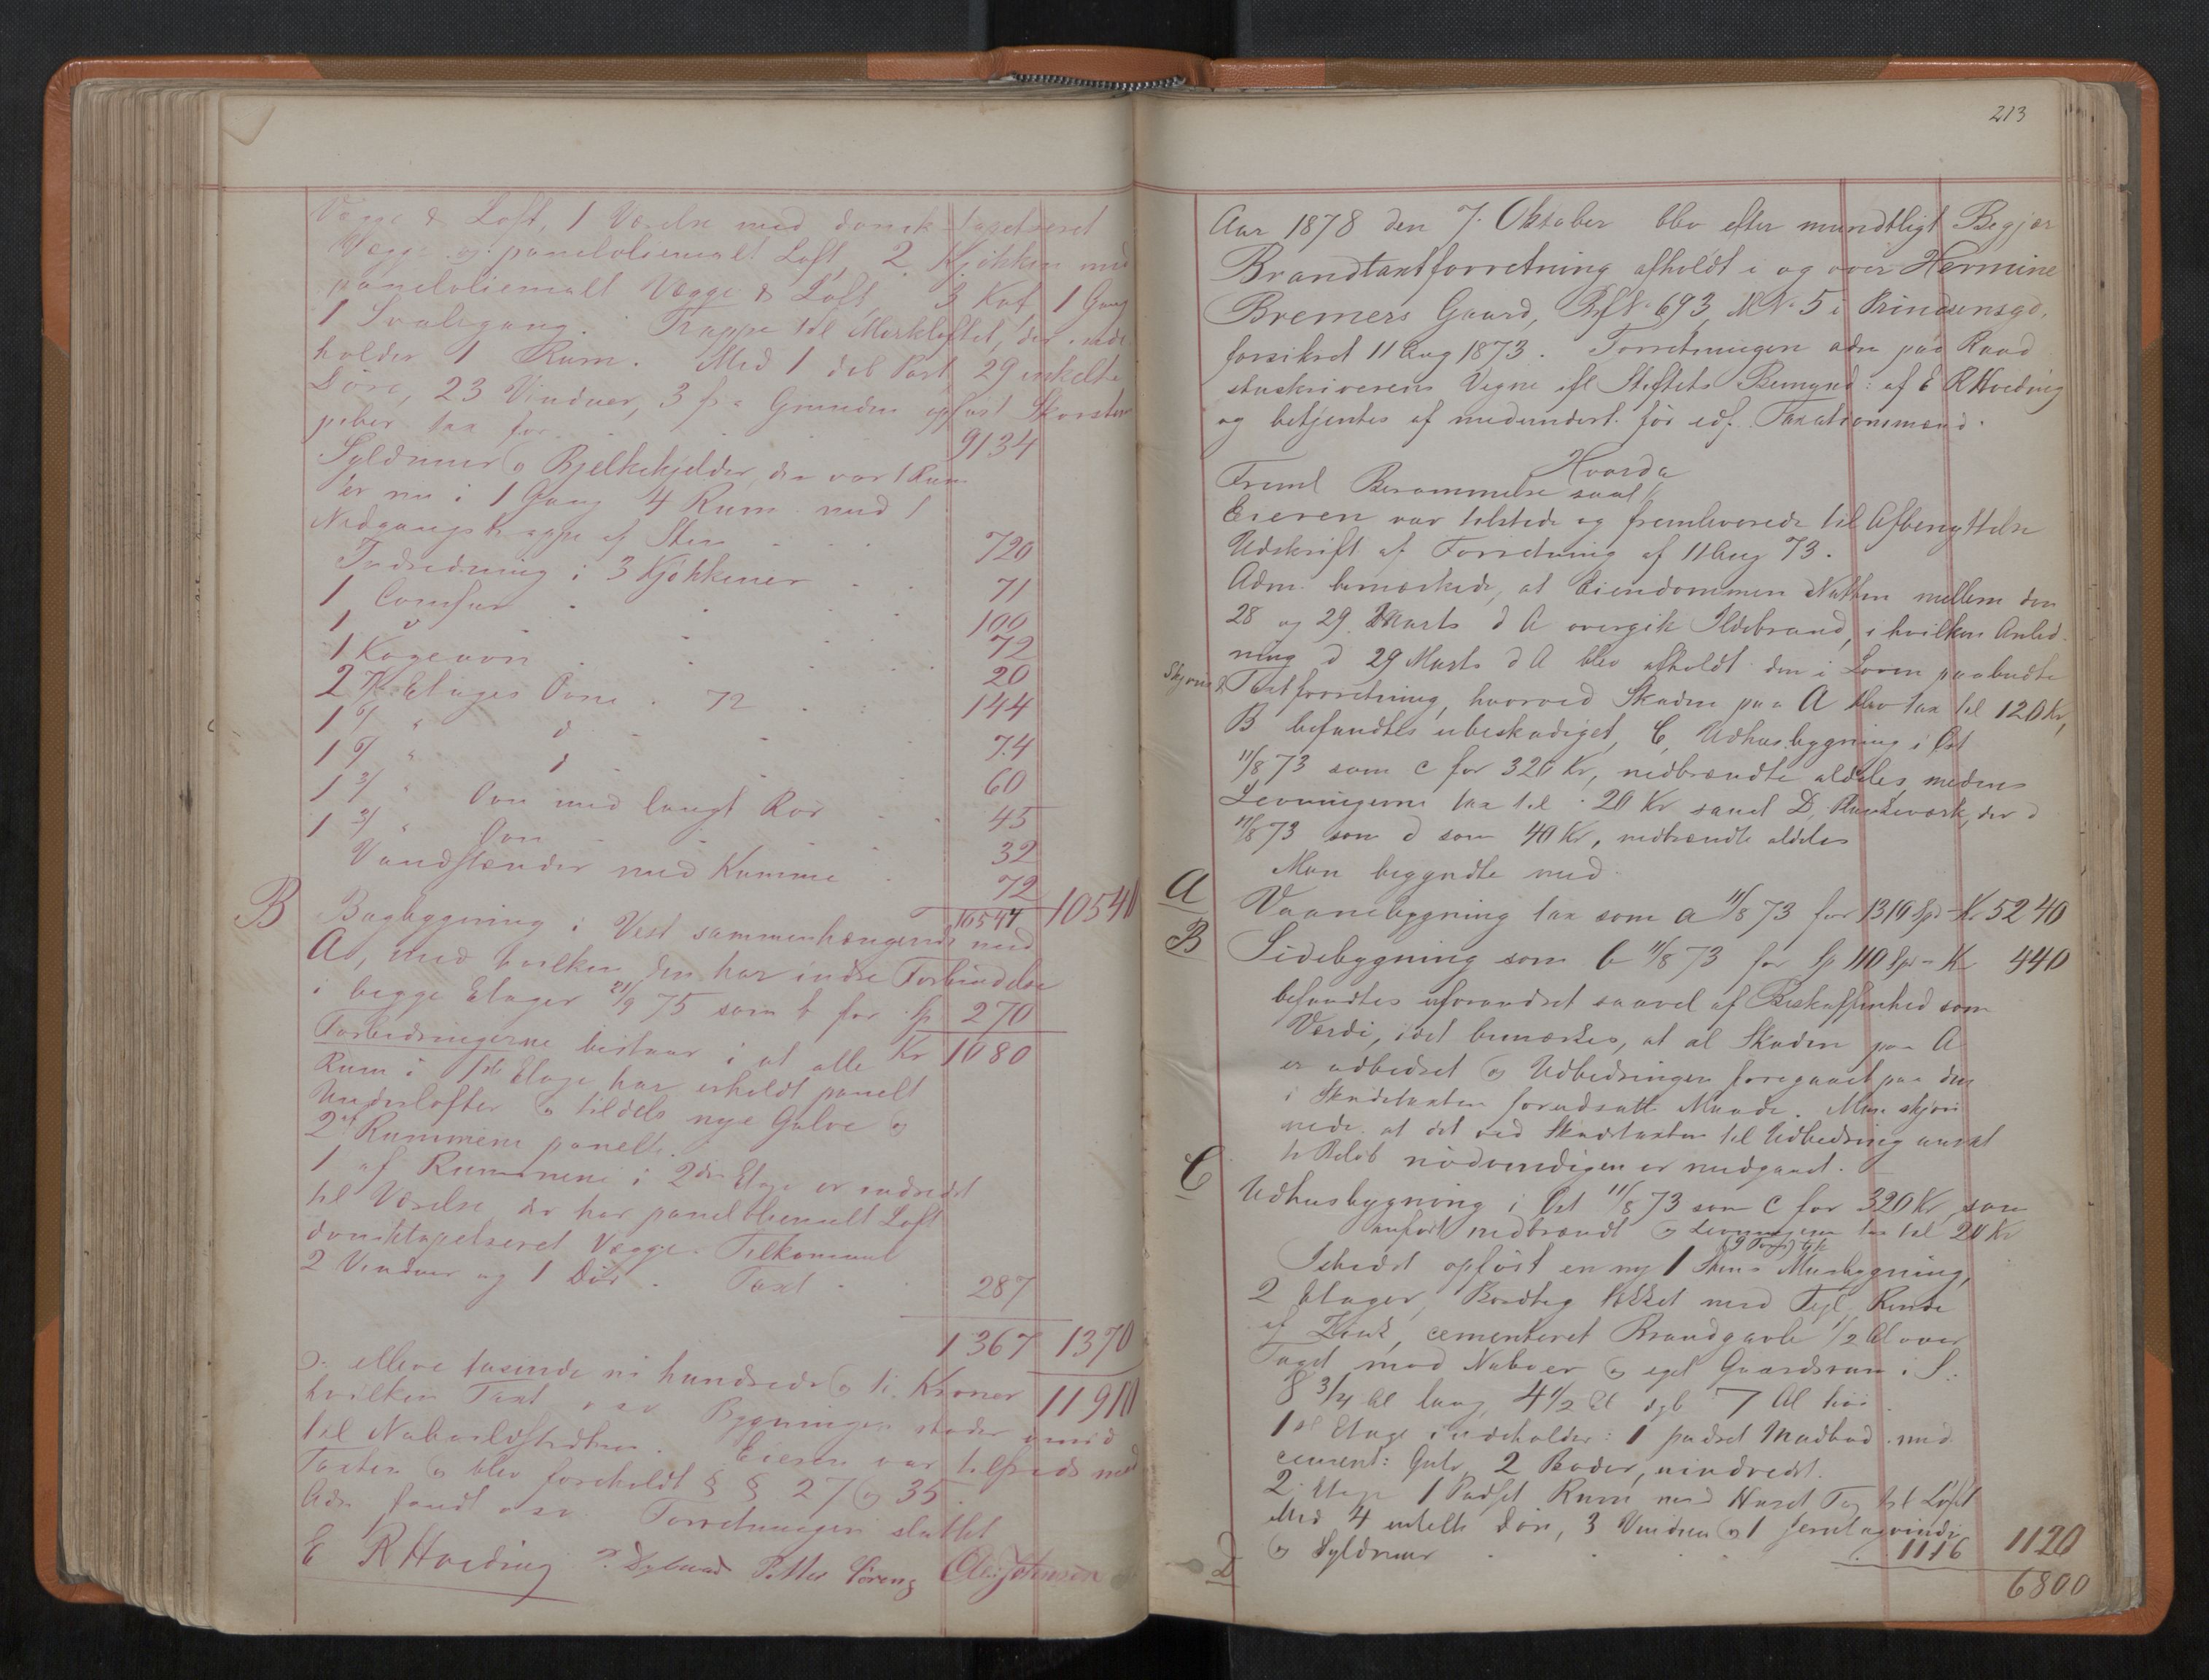 Vægge & Loft, 1 Værelse med dansk tapetseret
Vægge og paneloliemalt Loft, 2 Kjøkken med
paneloliemalt Vægge & Loft, 3 Kaf 1 Gang
1 Svalegang. Trappe til Mørkloftet, der inde
holder 1 Rum. Med 1 dob Port 29 enkelte
Døre, 23 Vinduer, 3 fra Grunden opført Skorsten
piber tax for 9134
Syldmur og Bjelkekjelder, der var 1 Rum
er nu i 1 Gang 4 Rum med 1
Nedgangstrappe af Sten 720
Indredning i 3 Kjøkkener 71
1 Comfur 100
1 d 72
1 Kageovn 20
2 Etages Ovne 72 144
1 6/ " d 74
1 6/ " d 60
1 3/ " Ovn med langt Rør 45
1 3/ " Ovn 32
Vandstænder med Kumme 72
10544 10540
B Bagbygning i Vest sammenhængende med
A, med hvilken den har indre Forbindelse
i begge Etager 21/9 75 som b for Sp 270
Forbedringerne bestaar i at alle Kr 1080
Rum i 1ste Etage har erholdt panelt
Underlofter og tildels nye Gulve og
2 af Rummene panelt.
1 af Rummene i 2den Etage er indredet
til Værelse, der har paneloliemalt Loft
dansktapetseret Vægge. Tilkommet
2 Vinduer og 1 Dør. Taxt 287
1367 1370
elleve tusinde ni hundrede og ti Kroner 11910
hvilken Taxt osv Bygningen støder imod
til Naboeløftedhus. Eieren var tilfreds med
Taxten og blev foreholdt § § 27 og 35.
Adm fandt osv. Forretningen sluttet
E R Hveding Petter Søreng Ole Johnsen
213
Aar 1878 den 7. Oktober blev efter mundtligt Begjær
Brandtaxtforretning afholdt i og over Hermine
Bremers Gaard, BfNo 693, MNo 5 i Prindsensgd,
forsikret 11 Aug 1873. Forretningen adm paa Raad
stuskriverens Vegne efl Stiftets Bemynd: af E R Hveding
og betjentes af medundert. før edf. Taxationsmænd.
Hvorda
Freml Berammelse saal
Eieren var tilstede og fremleverede til Afbenyttelse
Udskrift af Forretning af 11 Aug 73.
Adm. bemærkede, at Eiendommen Natten mellem den
28 og 29 Marts d A overgik Ildebrand, i hvilken Anled
ning d 29 Marts d A blev afholdt den i Loven paabudte
Skjøns & Taxtforretning, hvorved Skaden paa A blev tax til 120 Kr,
B befandtes ubeskadiget, C, Udhusbygning i Øst
11/8 73 som c for 320 Kr, nedbrændte aldeles, medens
Levningerne tax til 20 Kr samt D, Plankeværk, der d
11/8 73 som d som 40 Kr, nedbrændte aldeles
Man begyndte med
A Vaanebygning tax som a 11/8 73 for 1310 Spd = Kr 5240
B Sidebygning som b 11/8 73 for Sp 110 Spd = Kr 440
befandtes uforandret saavel af Beskaffenhed som
Værdi, idet bemærkes, at al Skaden paa A
er udbedret og Udbedringen foregaaet paa den
i Skadetaxten forudsatte Maade. Man skjøn
nede, at det ved Skadetaxten til Udbedring ansat
te Beløb nødvendigen er medgaaet.
C Udhusbygning i Øst 11/8 73 som c for 320 Kr, som
anført nedbrændt og Levningerne tax til 20 Kr
Istedet opført en ny 1 Stens Murbygning,
2 Etager, Bordtag tækket med Tegl, Rende
af Zink, cementeret Brandgavle 1/2 Al over
Taget mod Naboer og eget Gaardsrum i S.
8 3/4 Al lang, 4 1/2 Al dyb 7 Al høi.
1ste Etage indeholder: 1 pudset Madbod med
cement: Gulv, 2 Boder, uindredet.
2 Etage 1 Pudset Rum med Huset Tag til Loft
Med 4 enkelte Døre, 3 Vinduer og 1 Jerntagvindu
og Syldmur 1116 1120
D 6800